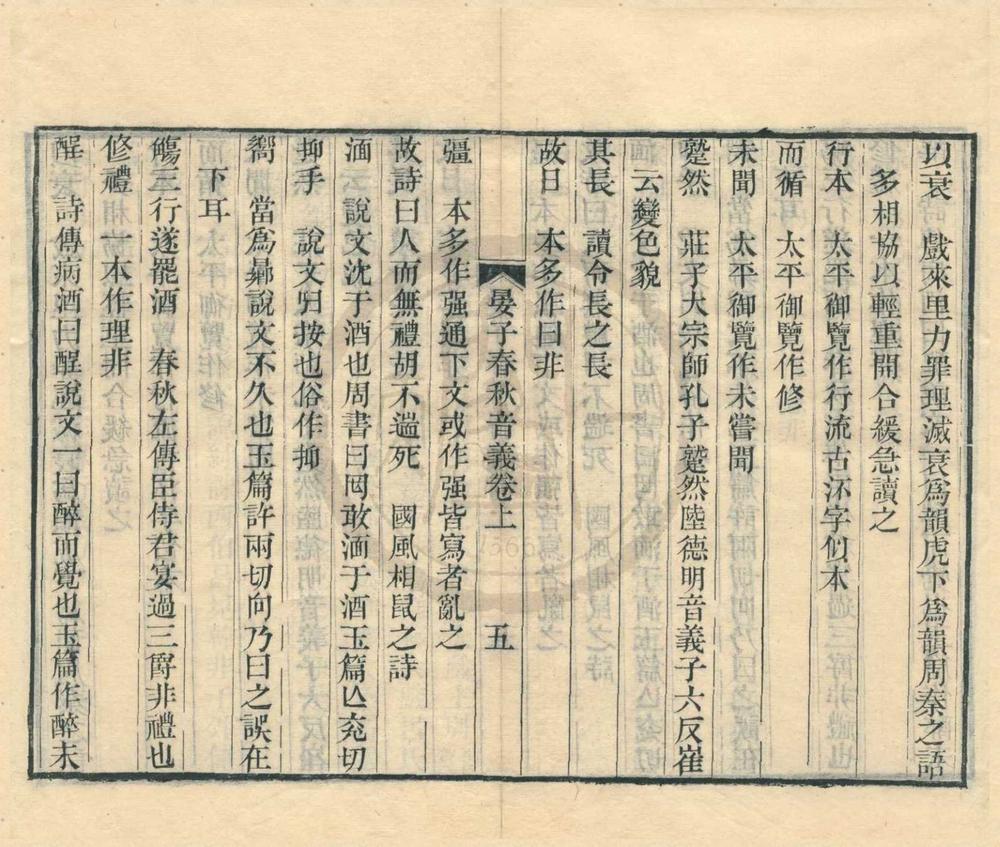 以衰　戲來里力罪理滅衰爲韻虎下爲韻周秦之語
多相協以輕重開合緩急讀之
行本　太平御覽作行流古㳅字似本
而循　太平御覽作修
未聞　太平御覽作未嘗聞
蹵然　莊子大宗師孔子蹵然陸德明音義子六反崔
云變色貌
其長　讀令長之長
故日　本多作曰非
晏子春秋音義卷上　五
彊　本多作强通下文或作强皆寫者亂之
故詩曰人而無禮胡不遄死　國風相鼠之詩
湎　說文沈于酒也周書曰罔敢湎于酒玉篇亾兖切
抑手　說文𢑏按也俗作抑
嚮　當爲曏說文不久也玉篇許兩切向乃曰之誤在
下耳
觴三行遂罷酒　春秋左傳臣侍君宴過三爵非禮也
修禮　一本作理非
酲　詩傳病酒曰酲說文一曰醉而覺也玉篇作醉未